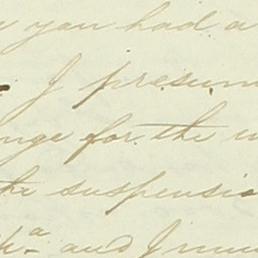 you had a
I presum
nge for the
the suspensio
and I